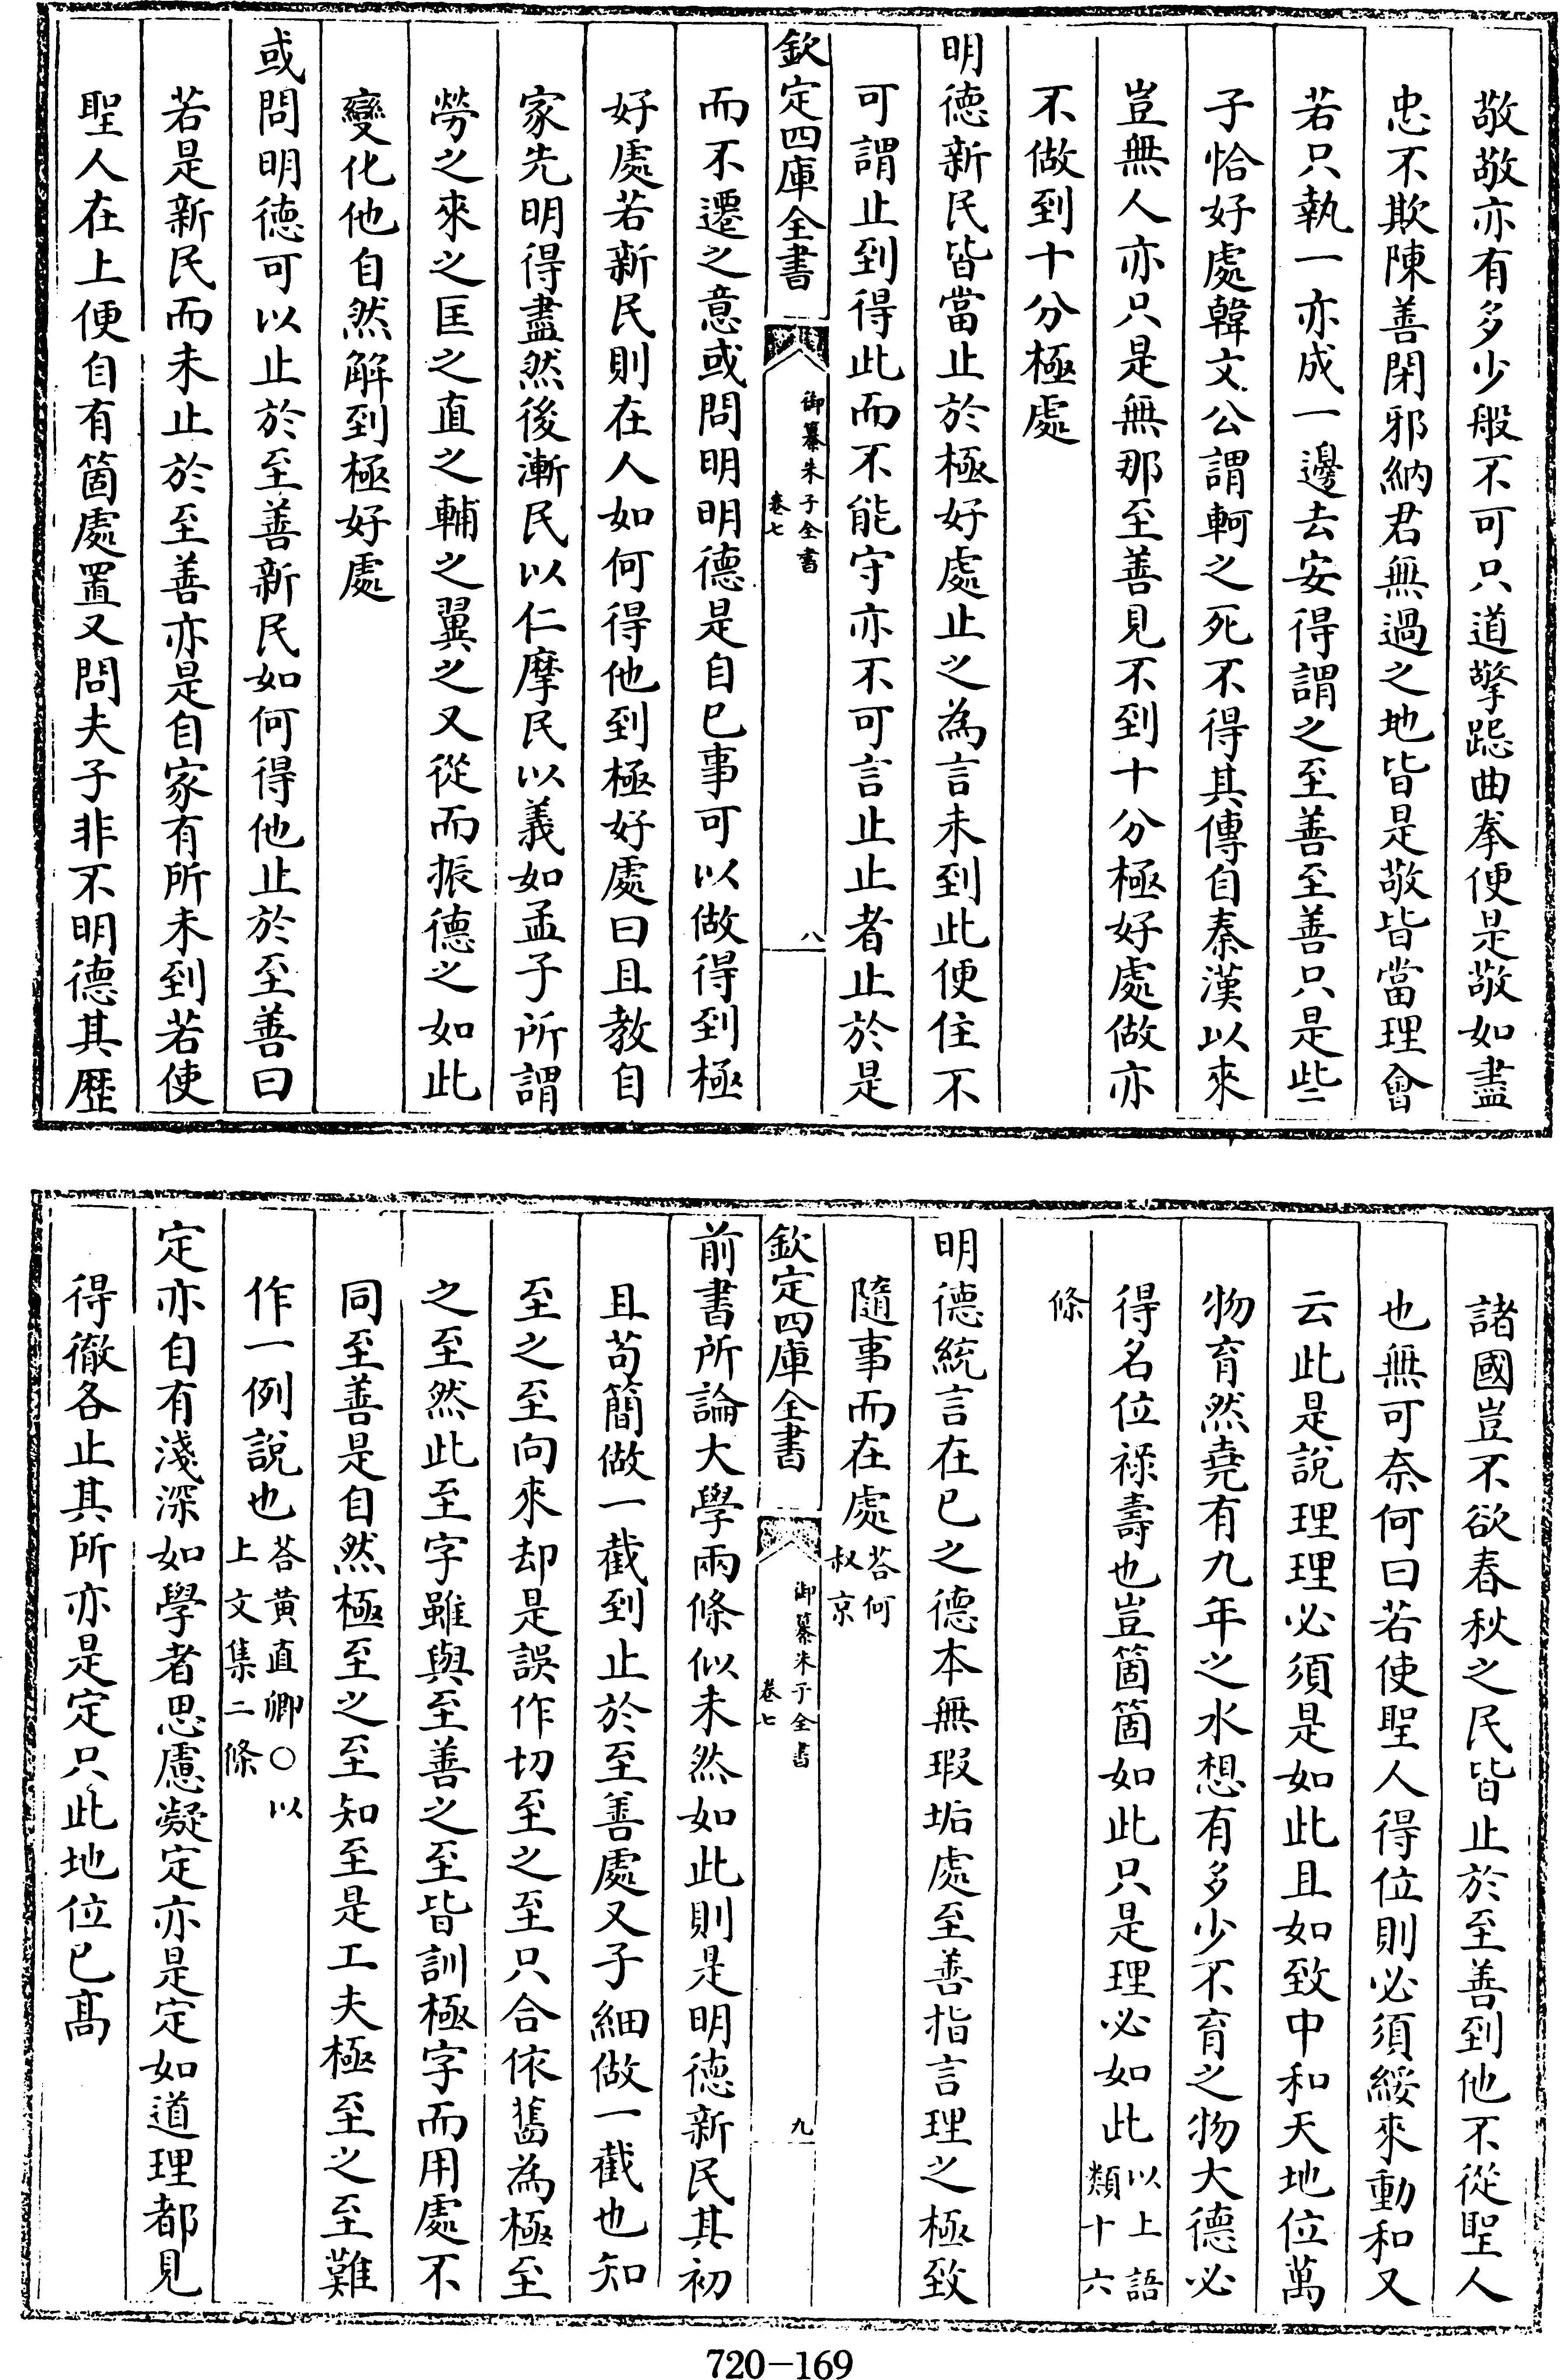 敬敬亦有多少般不可只道擎跽曲拳便是敬如盡
忠不欺陳善閉邪納君無過之地皆是敬皆當理會
若只執一亦成一邊去安得謂之至善至善只是些
子恰好處韓文公謂軻之死不得其傳自秦漢以來
豈無人亦只是無那至善見不到十分極好處做亦
不做到十分極處
明德新民皆當止於極好處止之為言未到此便住不
可謂止到得此而不能守亦不可言止止者止於是
欽定四庫全書
御纂朱子全書
卷七
八
而不遷之意或問明明德是自已事可以做得到極
好處若新民則在人如何得他到極好處曰且教自
家先明得盡然後漸民以仁摩民以義如孟子所謂
勞之來之匡之直之輔之翼之又從而振德之如此
變化他自然解到極好處
或問明德可以止於至善新民如何得他止於至善曰
若是新民而未止於至善亦是自家有所未到若使
聖人在上便自有箇處置又問夫子非不明德其歷
諸國豈不欲春秋之民皆止於至善到他不從聖人
也無可奈何曰若使聖人得位則必須綏來動和又
云此是說理理必須是如此且如致中和天地位萬
物育然堯有九年之水想有多少不育之物大德必
得名位祿壽也豈箇箇如此只是理必如此以上語
類十六
條
明德統言在已之德本無瑕垢處至善指言理之極致
隨事而在處荅何
叔京
欽定四庫全書
御纂朱子全書
卷七
九
前書所論大學兩條似未然如此則是明德新民其初
且苟簡做一截到止於至善處又子細做一截也知
至之至向來却是誤作切至之至只合依舊為極至
之至然此至字雖與至善之至皆訓極字而用處不
同至善是自然極至之至知至是工夫極至之至難
作一例說也荅黄直卿○以
上文集二條
定亦自有淺深如學者思慮凝定亦是定如道理都見
得徹各止其所亦是定只此地位已髙
720-169